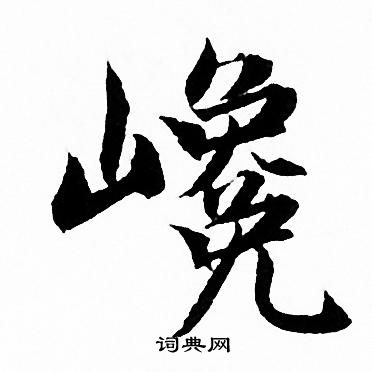 巉
词典网